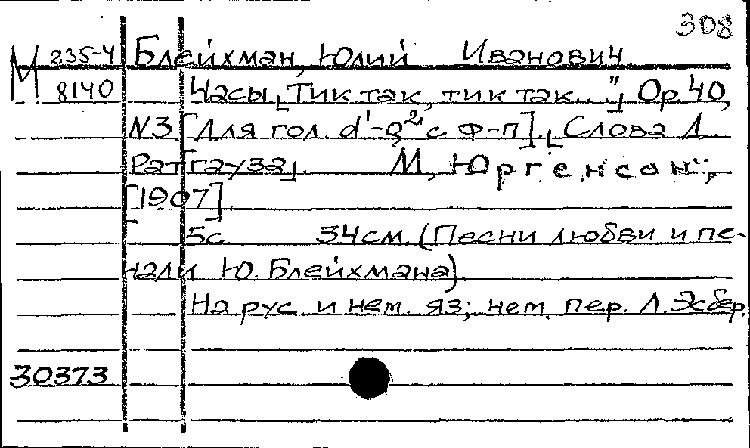 308
М 235-4 Блейхман, Юлий Иванович
8140 Часы „Тик так, тик так..." Op. 40,
N3. [Для гол. d¹-g² с ф-п]. Слова Д.
Ратгауза. М, Юргенсон";
[1907]
5с 34см. (Песни любви и пе-
чали Ю. Блейхмана)
На рус. и нем. яз; нем. пер. Л. Эсбер.
30373